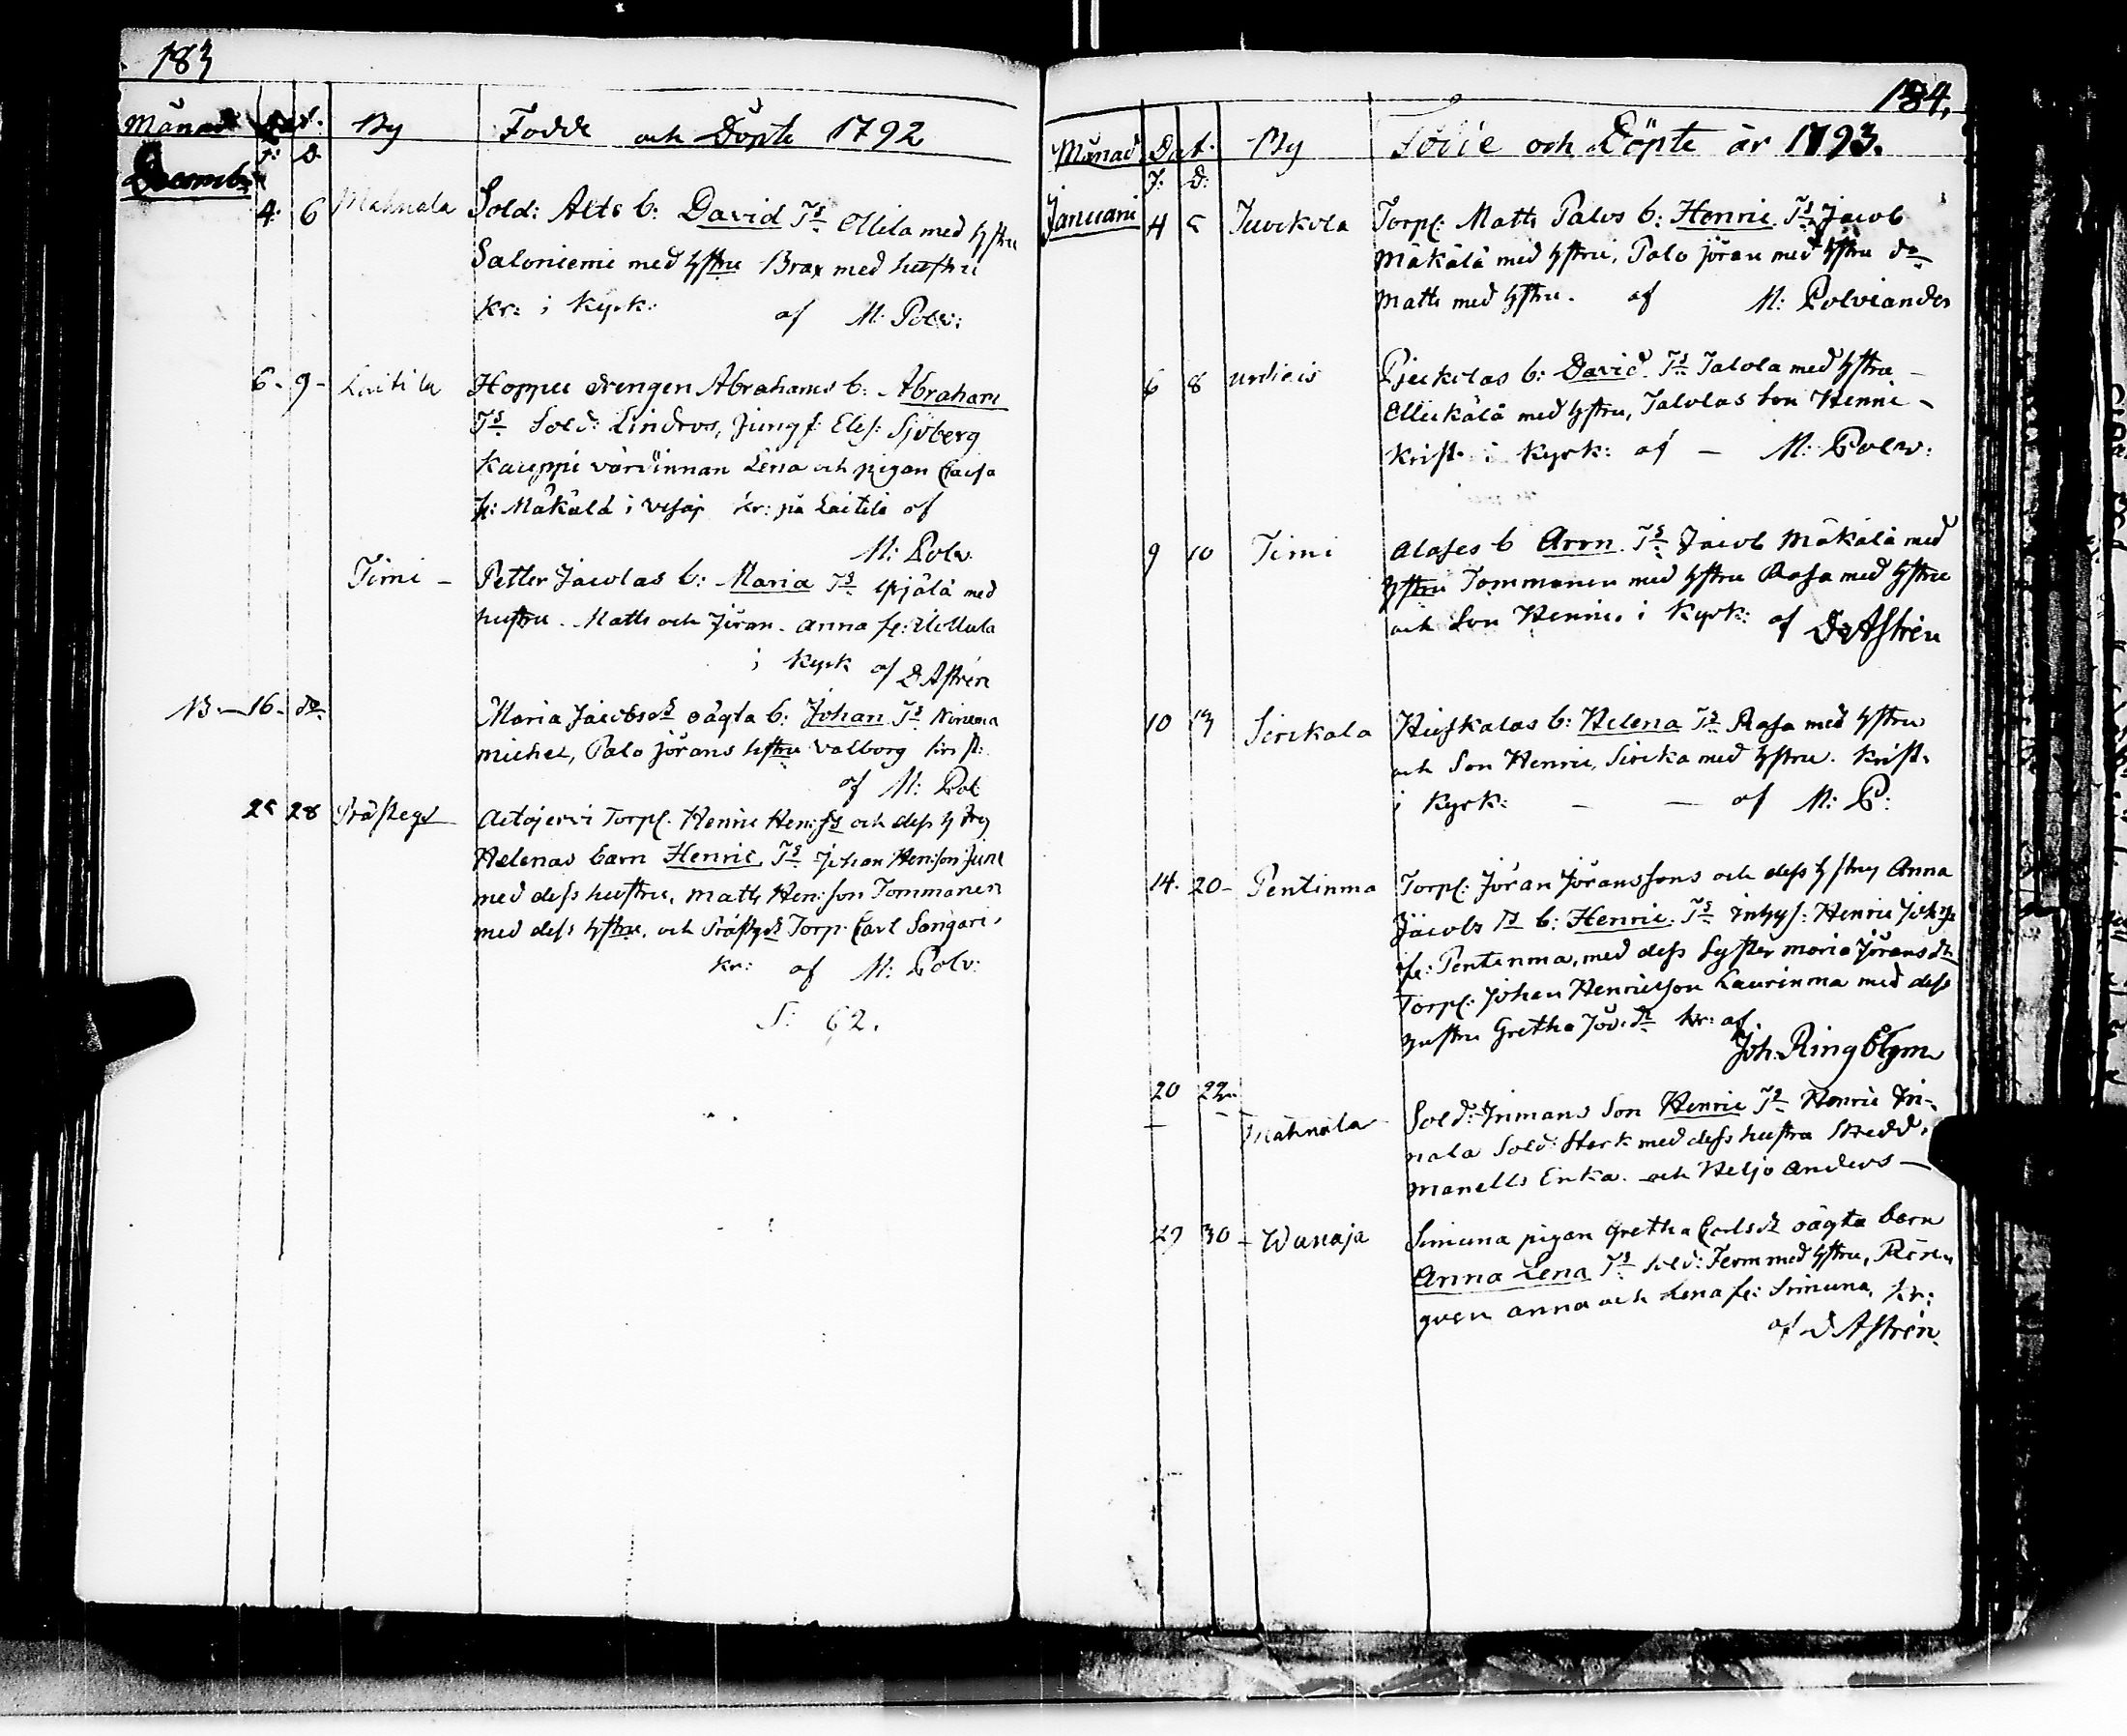 183
Månad Dat. By Födde och Döpte 1792
F: D.
Decembr
4. 6 Mahnala Sold: Alts b: David Ts Ellila med hstru
Saloniemi med hstru Brax med hustru
kr: i Kyrk: af M: Polv:
6 - 9 - Laitila Hoppu drengen Abrahams b: Abraham
Ts Sold: Lindros, Jungf: Elis: Sjöberg
Kauppi värdinnan Lena och pigan Caisa
fr: Mäkälä i Vesaj kr: på Laitila af
M: Polv
Timi - Petter Jacolas b: Maria Ts Ypjälä med
hustru. Matts och Jöran. Anna fr:
i Kyrk af D Astrén
13 - 16 - do Maria Jacobsdr oägta b: Johan Ts
Michel, Palo Jörans hstru Valborg krist:
af M: Pol
25 28 Prästegd Torp: Henric Hens:s och dess
Helenas barn Henric Ts Johan Hens:son
med dess hustru, Matts Hen:son Tommanen
med dess hstru, och Torp: Carl Sangari,
kr: af M: Polv:
S: 62.
184.
Månad Dat. By Födde och Döpte år 1793.
F: D:
Januarii 4 5 Juvikola Torp: Matts Palos b: Henric Ts Jacob
Mäkälä med hstru, Palo Jöran med hstru do
Matts med hstru. af M: Polviander
6 8 undieis b: David Ts Talola med hstru -
Ellikälä med hstru, Talolas son Henric -
krist. i Kyrk: af - M: Polv:
9 10 Timi b Aron Ts Jacob Mäkälä med
hstru Tommanen med hstru Rasa med hstru
och Son Henric, i Kyrk: af D Astrén
10 13 Sirikala Huiskalas b: Helena Ts Rasa med hstru
och Son Henric, Sirika med hstru. Krist.
i Kyrk: - - af M: P:
14. 20 - Pentinma Torp: Jöran Jöranssons och dess Anna
Jacobs dr b: Henric Ts inhys: Henric
fr: Pentinma, med dess Syster Maria Jöransdr
Torp: Johan Henricsson Laurinma med dess
hustru Gretha kr: af
Joh: Ringbom
20 22
Mahnala Sold: Inmans Son Henric Ts Henric
nala Sold: Stark med dess hustru
manells Erika. och Heljo Anders -
29 30 - Wanaja Simuna pigan Gretha Carlsdr oägta barn
Anna Lena Ts Sold: Ferm med hstru,
Anna och Lena fr: Simuna, kr:
af D Astrén